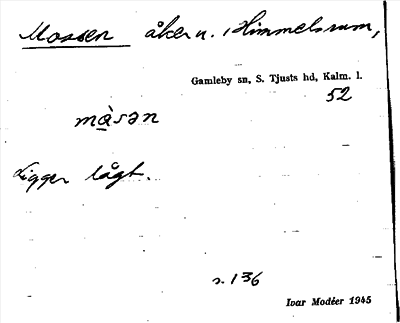 Mossen åkern. Himmelsrum,
Gamleby sn, S. Tjusts hd, Kalm. l.
52
mɑ̀sən
Ligger lågt.
s. 136
Ivar Modéer 1945